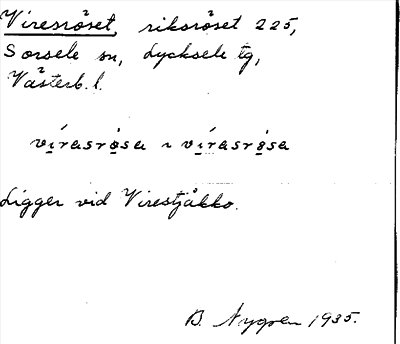 Viresröset, riksröset 225,
Sorsele sn, Lycksele tg,
Västerb. l.
vírasrösa ~ vírasrösa
Ligger vid Virestjåkko.
B. Nygren 1935.